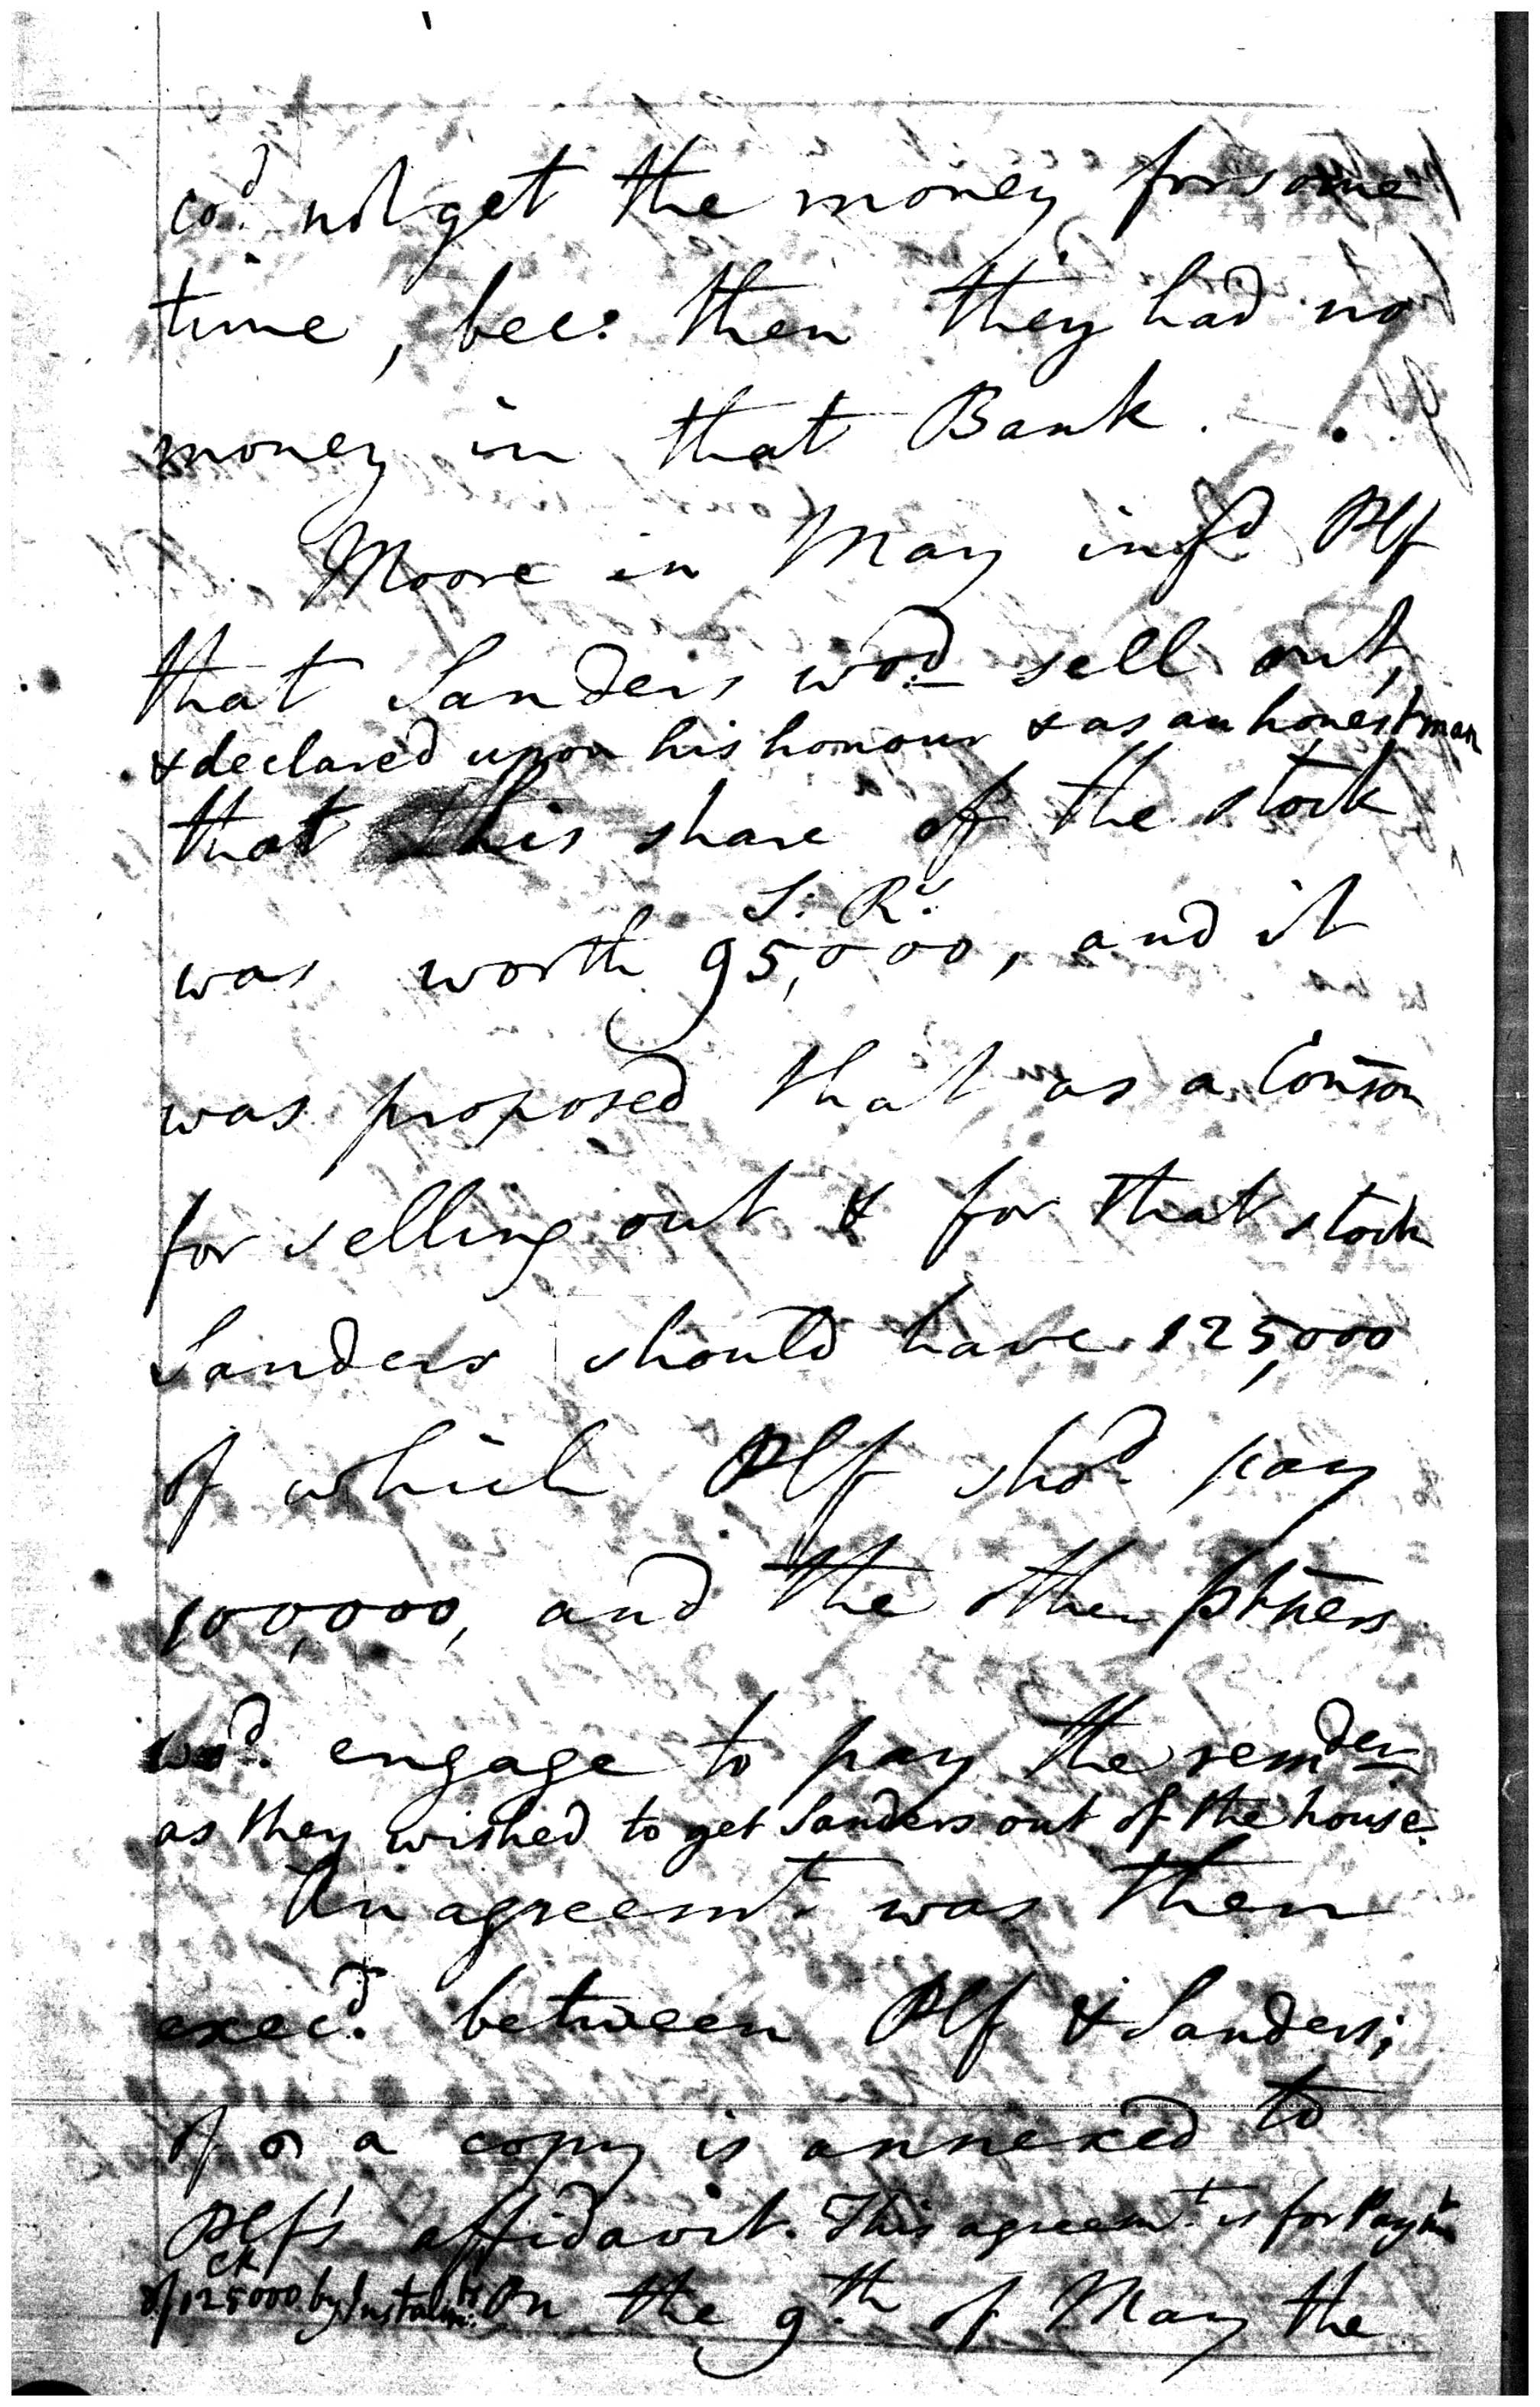 cod. not get the money for some
time, bec: then they had no
money in that Bank.
Moore in May infd Plf
that Sanders wod. sell out,
& declared upon his honour & as an honest man
that this share of the stock
S. Rs.
was worth 95,000, and it
was proposed that as a Conson
for selling out & for that stock
Sanders should have 125,000
of which Plf shod. pay
100,000, and the other ptners
wod. engage to pay the remder
as they wished to get Sanders out of the house.
An agreemt. was then
execd. between Plf & Sanders;
of a copy is annexed to
Plf's affidavit. This agreemt. is for Paymt
of 125000 by Instalmts. On the 9th of May the